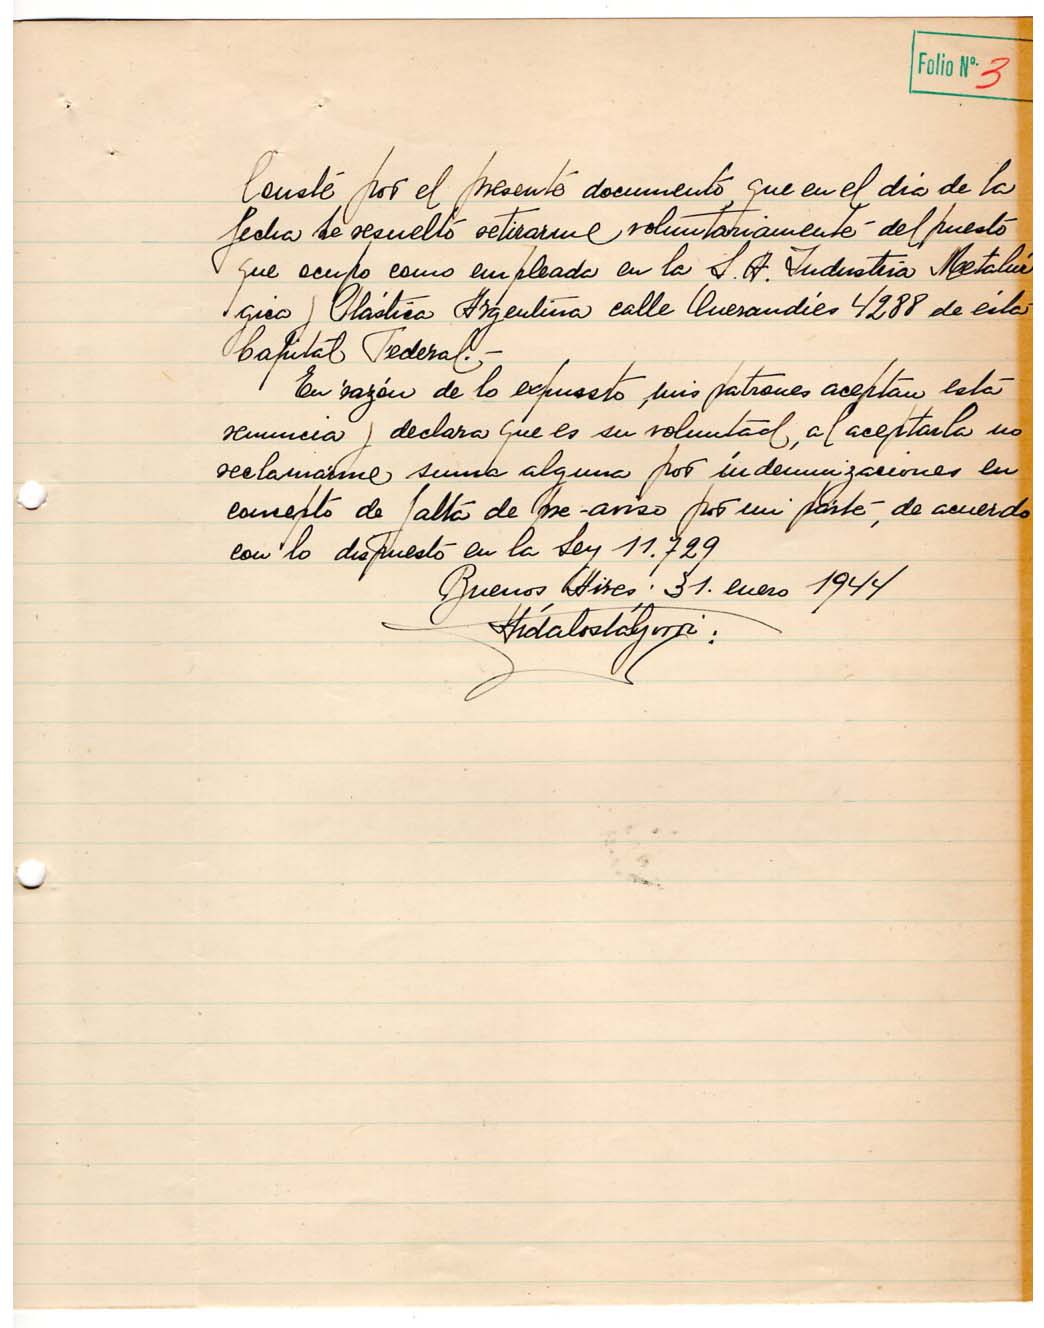 Folio Nº. 3
Consté por el presenté documentó, que en el dia de la
fecha he resueltó retirarme voluntariamenté del puestó
que ocupo como empleada en la S. A. Industria Metalúr
gica y Plástica Argentina calle Querandíes 4288 de ésta
Capital Federal.-
En razón de lo expuesto, mis patrones aceptan está
renuncia y declara que es su voluntad, al aceptarla no
reclamarme suma alguna por indemnizaciones en
conceptó de faltá de pre-aviso por mi parté, de acuerdo
con lo dispuestó en la Ley 11.729
Buenos Aires. 31. enero 1944